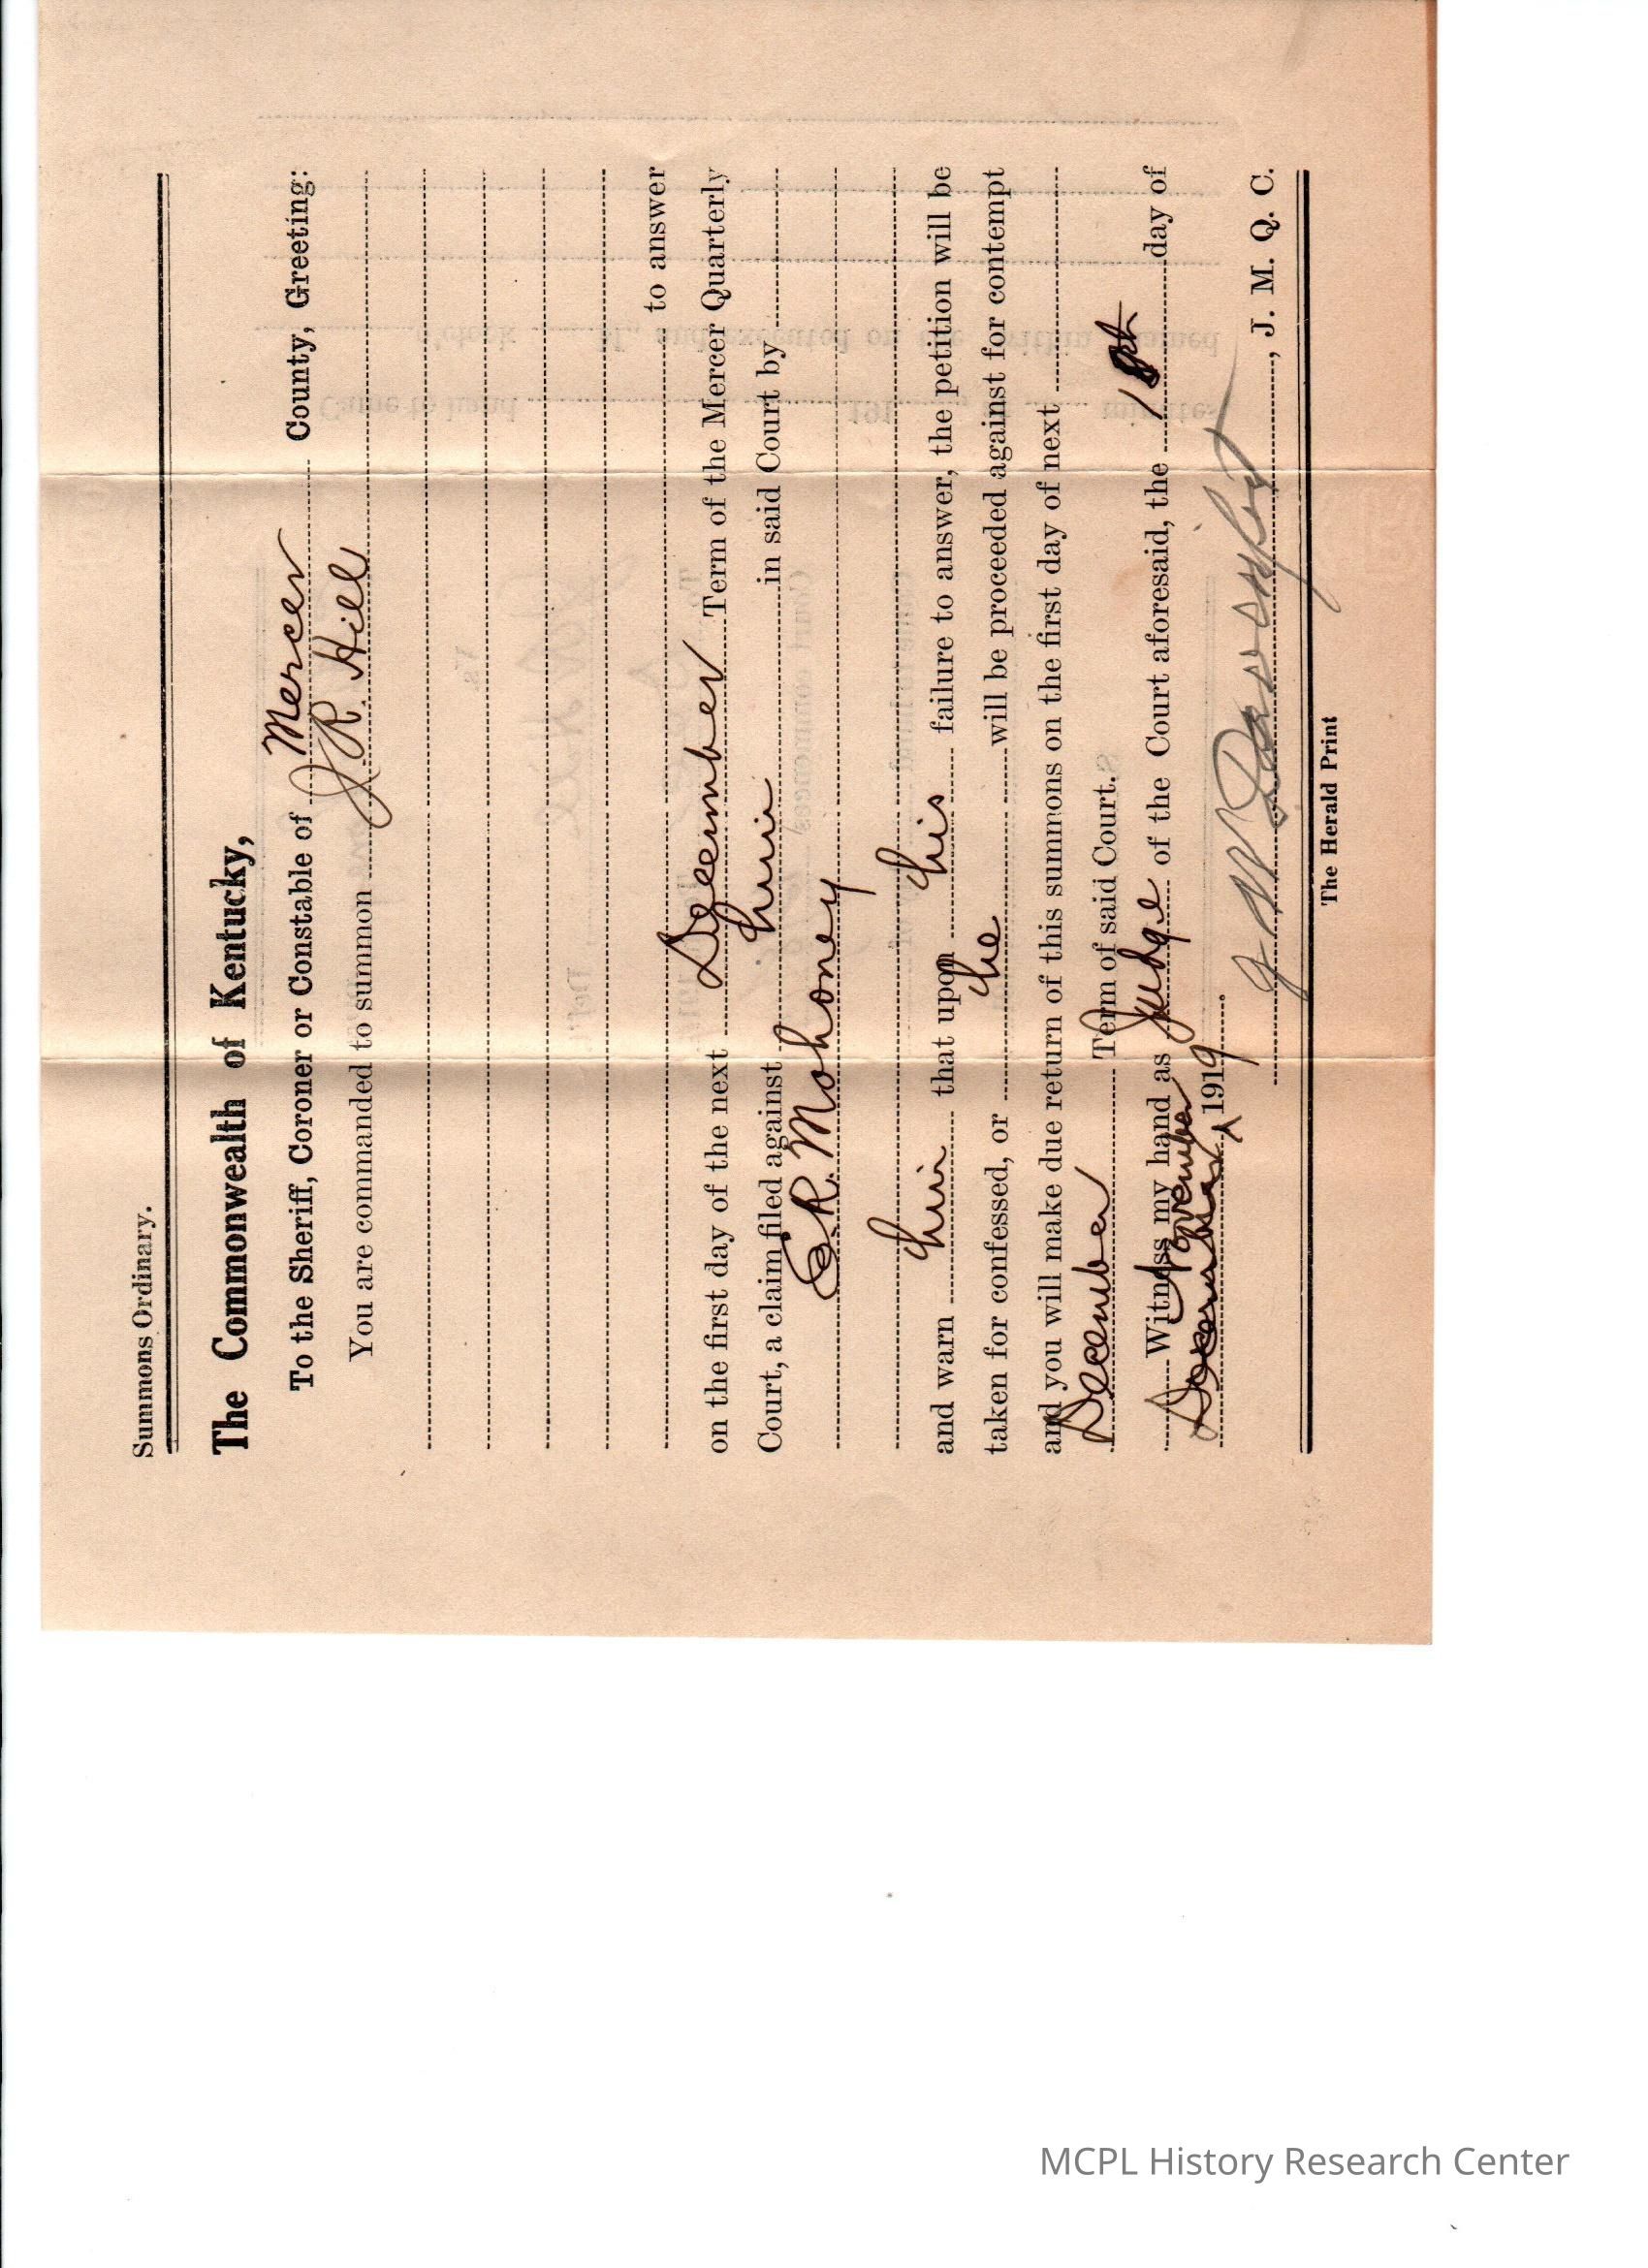 Summons Ordinary.
The Commonwealth of Kentucky,
To the Sheriff, Coroner or Constable of Mercer County, Greeting:
You are commanded to summon J. R. Hill
to answer
on the first day of the next December Term of the Mercer Quarterly
Court, a claim filed against him in said Court by
C. R. Mohoney
and warn him that upon his failure to answer, the petition will be
taken for confessed, or the will be proceeded against for contempt
and you will make due return of this summons on the first day of next
December Term of said Court.
Witness my hand as Judge of the Court aforesaid, the day of
November
December 1919
, J. M. Q. C.
The Herald Print
MCPL History Research Center